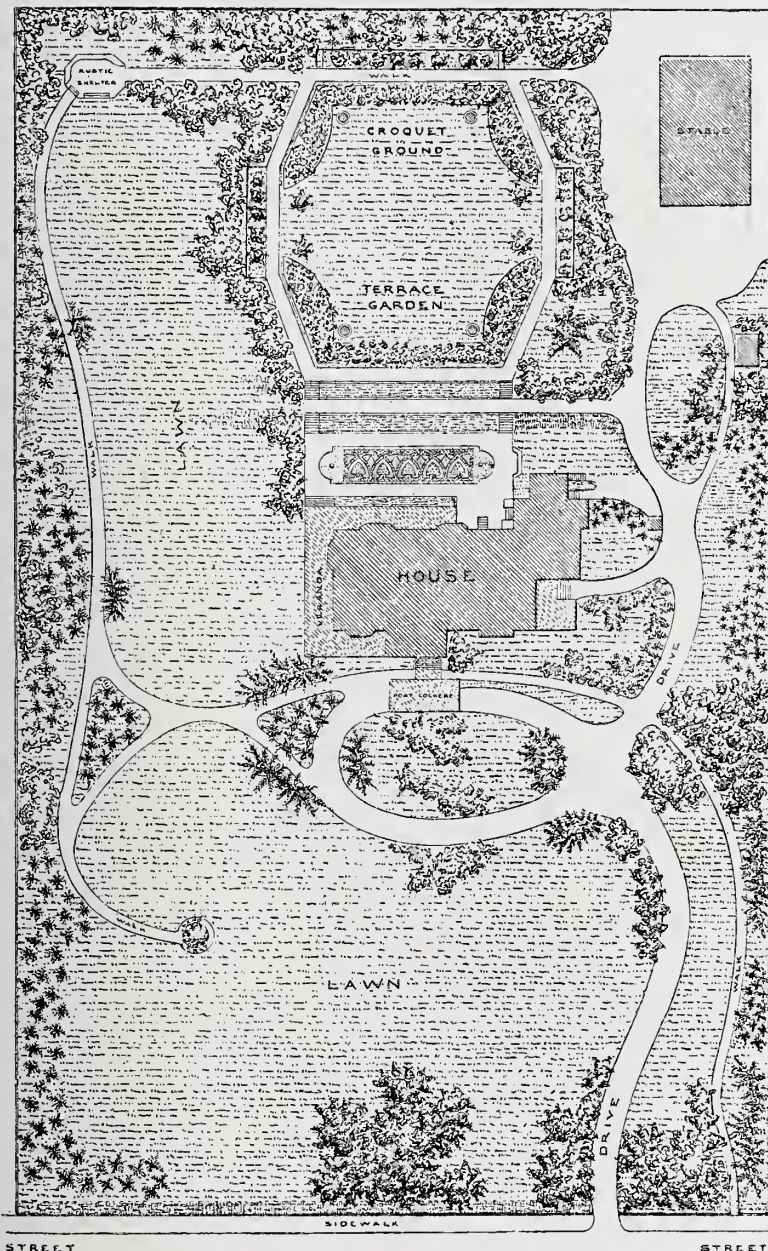 RUSTIC
SHELTER
WALK
STABLE
CROQUET
GROUND
TERRACE
GARDEN
LAWN
WALK
HOUSE
VERANDA
DRIVE
WALK
LAWN
WALK
DRIVE
SIDEWALK
STREET
STREET